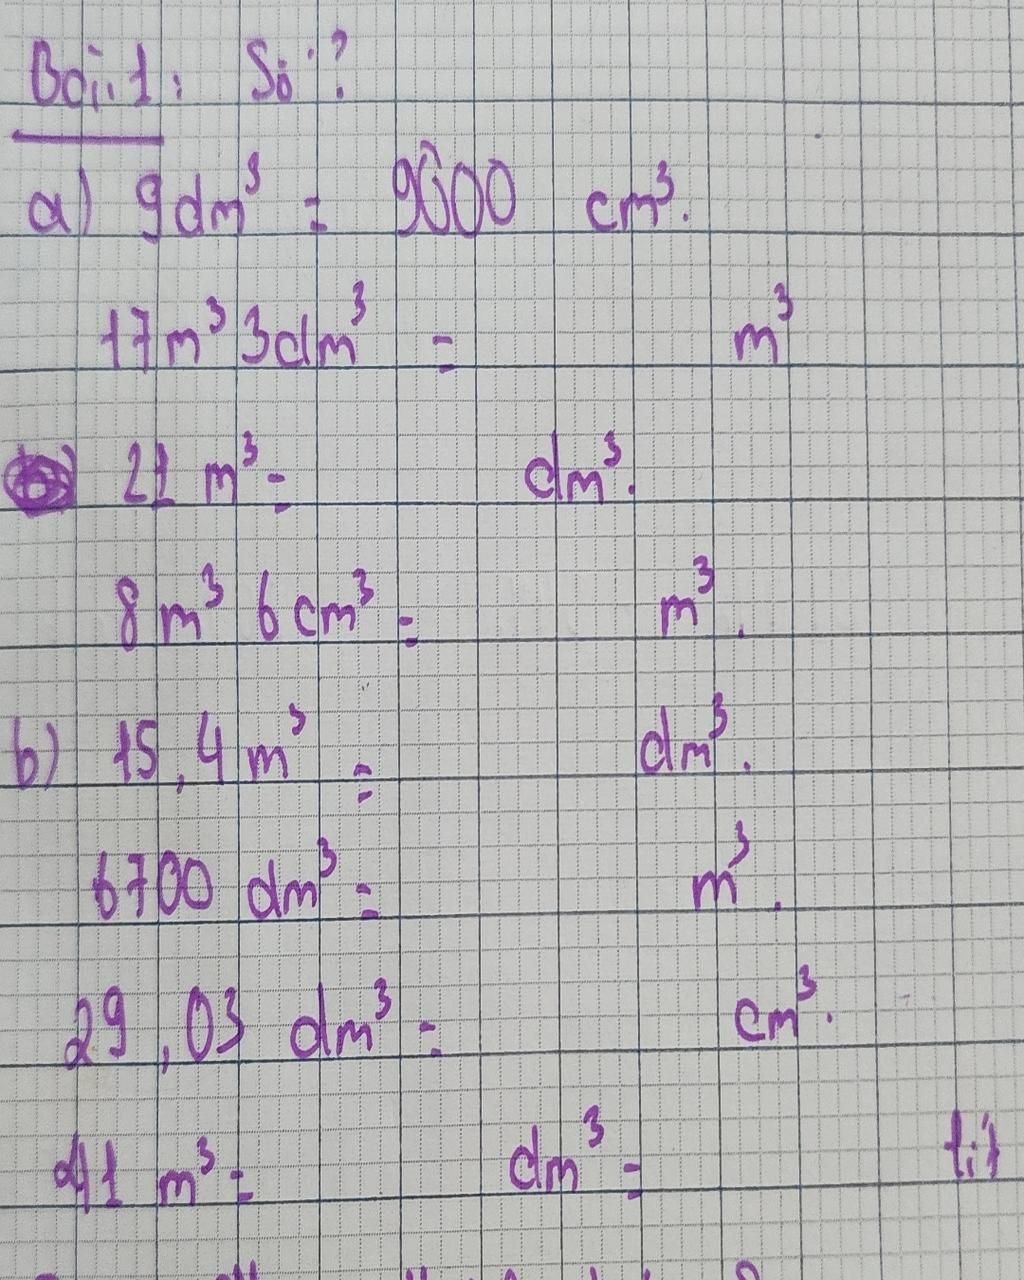 Bài 1: Số ?
a) 9dm³ = 9000 cm³.
17m³ 3dm³ = m³
21 m³ = dm³.
8m³ 6cm³ = m³.
b) 15,4 m³ = dm³.
6700 dm³ = m³.
29,03 dm³ = cm³.
41 m³ = dm³ = lít